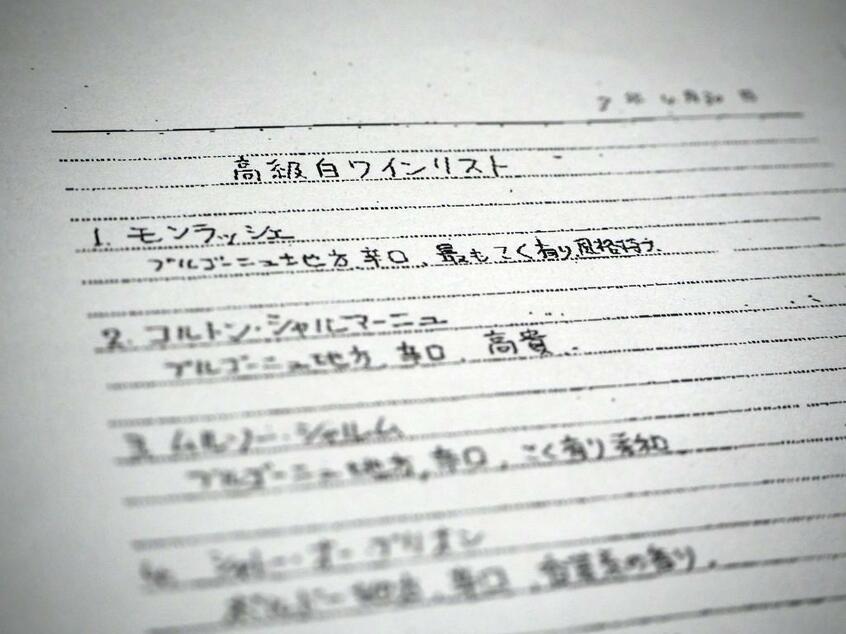 7年4月30日
高級白ワインリスト
1. モンラッシェ
ブルゴーニュ地方、辛口、最もこく有り、風格持つ.
2. コルトン・シャルマーニュ
ブルゴーニュ地方、辛口、高貴.
3. ムルソー・シャルム
ブルゴーニュ地方、辛口、こく有り
4. シャトー・オー・ブリオン
ボルドー地方、辛口、の香り.